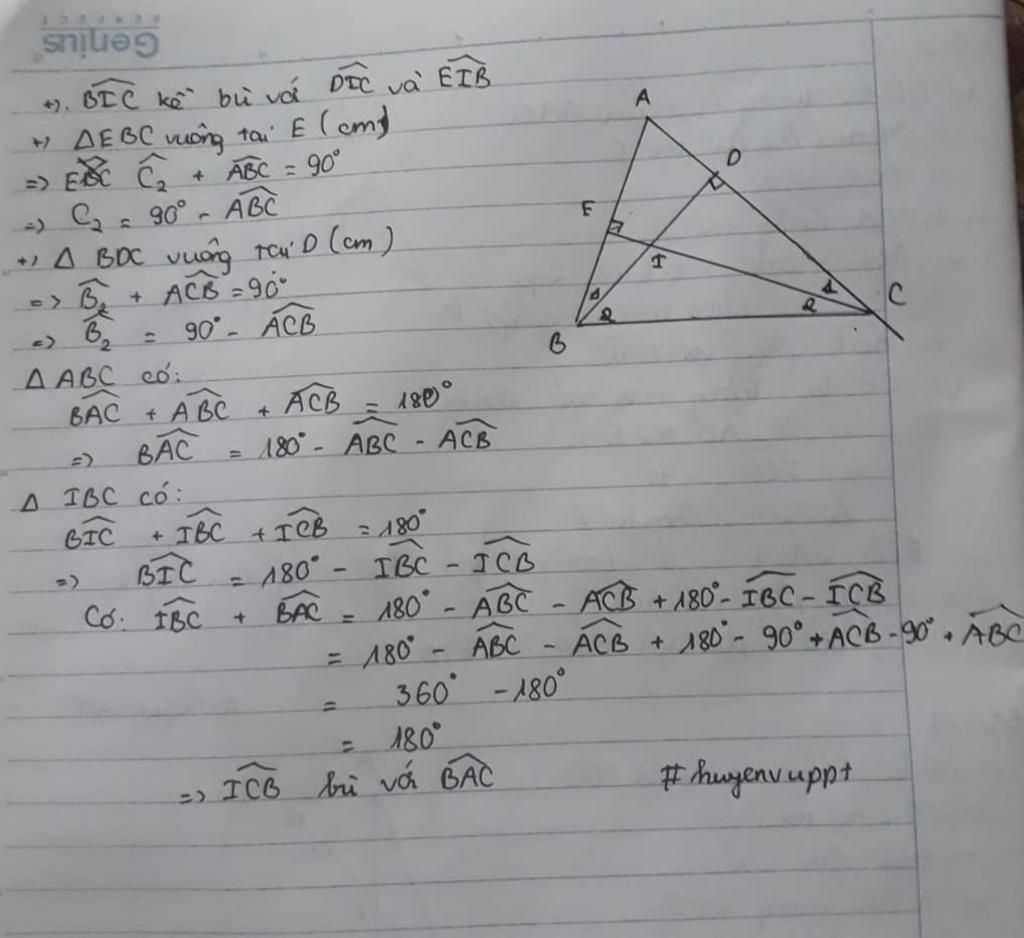 Genius
PERFECT
+). $\widehat{BIC}$ kề bù với $\widehat{DIC}$ và $\widehat{EIB}$
+) ΔEBC vuông tại E (cmt)
=> $\widehat{C}_2$ + $\widehat{ABC}$ = 90°
=> C₂ = 90° - $\widehat{ABC}$
+) Δ BDC vuông tại D (cm)
=> $\widehat{B}_2$ + $\widehat{ACB}$ = 90°
=> $\widehat{B}_2$ = 90° - $\widehat{ACB}$
Δ ABC có:
$\widehat{BAC}$ + $\widehat{ABC}$ + $\widehat{ACB}$ = 180°
=> $\widehat{BAC}$ = 180° - $\widehat{ABC}$ - $\widehat{ACB}$
Δ IBC có:
$\widehat{BIC}$ + $\widehat{IBC}$ + $\widehat{ICB}$ = 180°
=> $\widehat{BIC}$ = 180° - $\widehat{IBC}$ - $\widehat{ICB}$
Có: $\widehat{IBC}$ + $\widehat{BAC}$ = 180° - $\widehat{ABC}$ - $\widehat{ACB}$ + 180° - $\widehat{IBC}$ - $\widehat{ICB}$
= 180° - $\widehat{ABC}$ - $\widehat{ACB}$ + 180° - 90° + $\widehat{ACB}$ - 90° + $\widehat{ABC}$
= 360° - 180°
= 180°
=> $\widehat{ICB}$ bù với $\widehat{BAC}$
#huyenvuppt
A
D
E
I
1
2
1
2
B
C